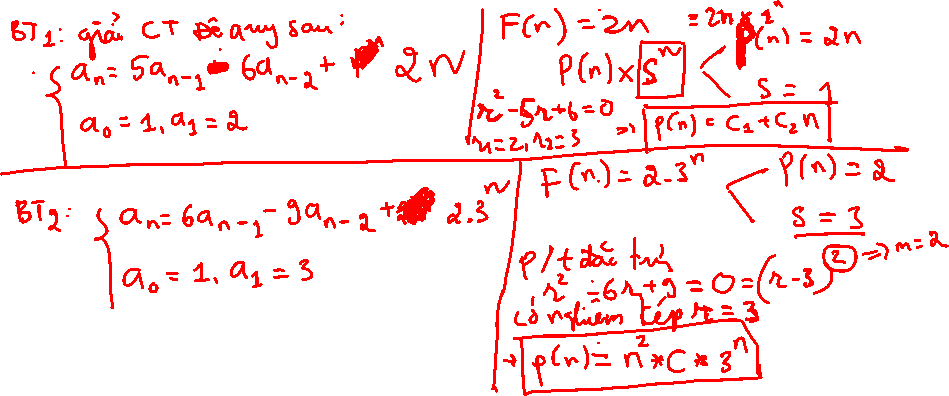 BT1: giải CT Đệ quy sau:
aₙ = 5aₙ₋₁ - 6aₙ₋₂ + 2n
a₀ = 1, a₁ = 2
F(n) = 2n = 2n * 1ⁿ
P(n) x Sⁿ
P(n) = 2n
S = 1
r² - 5r + 6 = 0
r₁ = 2, r₂ = 3 => P(n) = C₁ + C₂ n
BT2: aₙ = 6aₙ₋₁ - 9aₙ₋₂ + 2.3ⁿ
a₀ = 1, a₁ = 3
F(n) = 2.3ⁿ
P(n) = 2
S = 3
P/t đặc trưng
r² - 6r + 9 = 0 = (r - 3)² => m = 2
có nghiệm kép r = 3
→ p(n) = n² * C * 3ⁿ